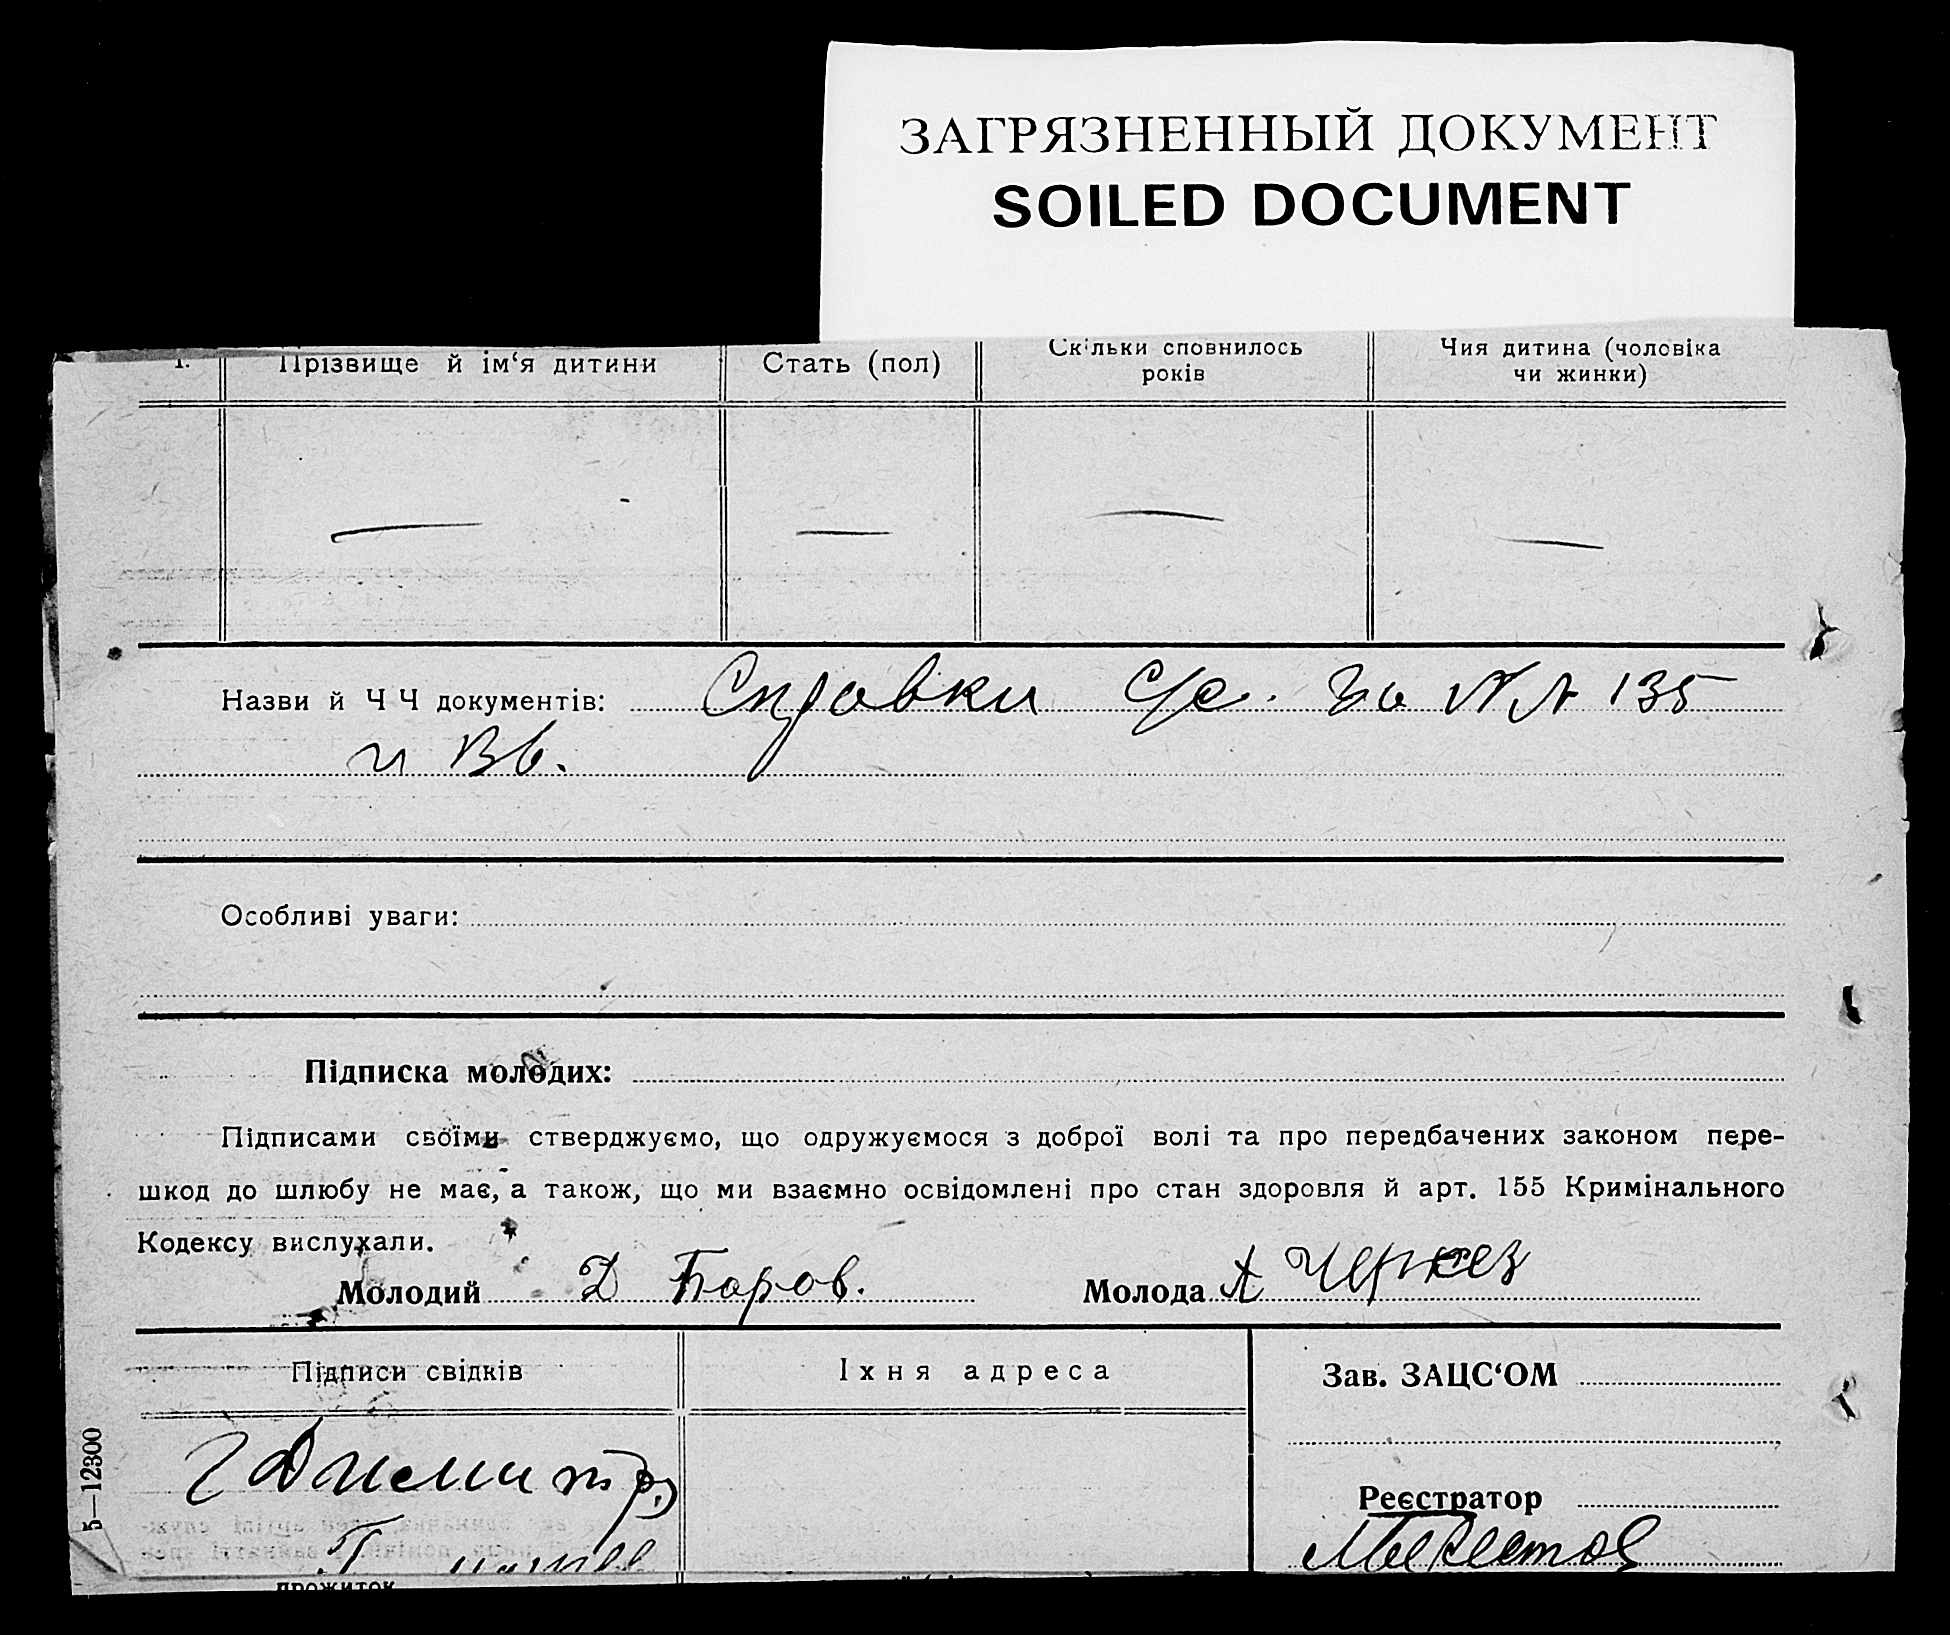 ЗАГРЯЗНЕННЫЙ ДОКУМЕНТ
SOILED DOCUMENT
Прізвище й ім‘я дитини
Стать (пол)
Скільки сповнилось
років
Чия дитина (чоловіка
чи жинки)
Назви й Ч Ч документів: Справки С/с. за №№ 135
и
Особливі уваги:
Підписка молодих:
Підписами своїми стверджуємо, що одружуємося з доброї волі та про передбачених законом пере-
шкод до шлюбу не має, а також, що ми взаємно освідомлені про стан здоровля й арт. 155 Кримінального
Кодексу вислухали.
Молодий Д Баров. Молода А Черкез
Підписи свідків
Іхня адреса
Зав. ЗАЦС‘ОМ
Реєстратор
5—12300
прожиток